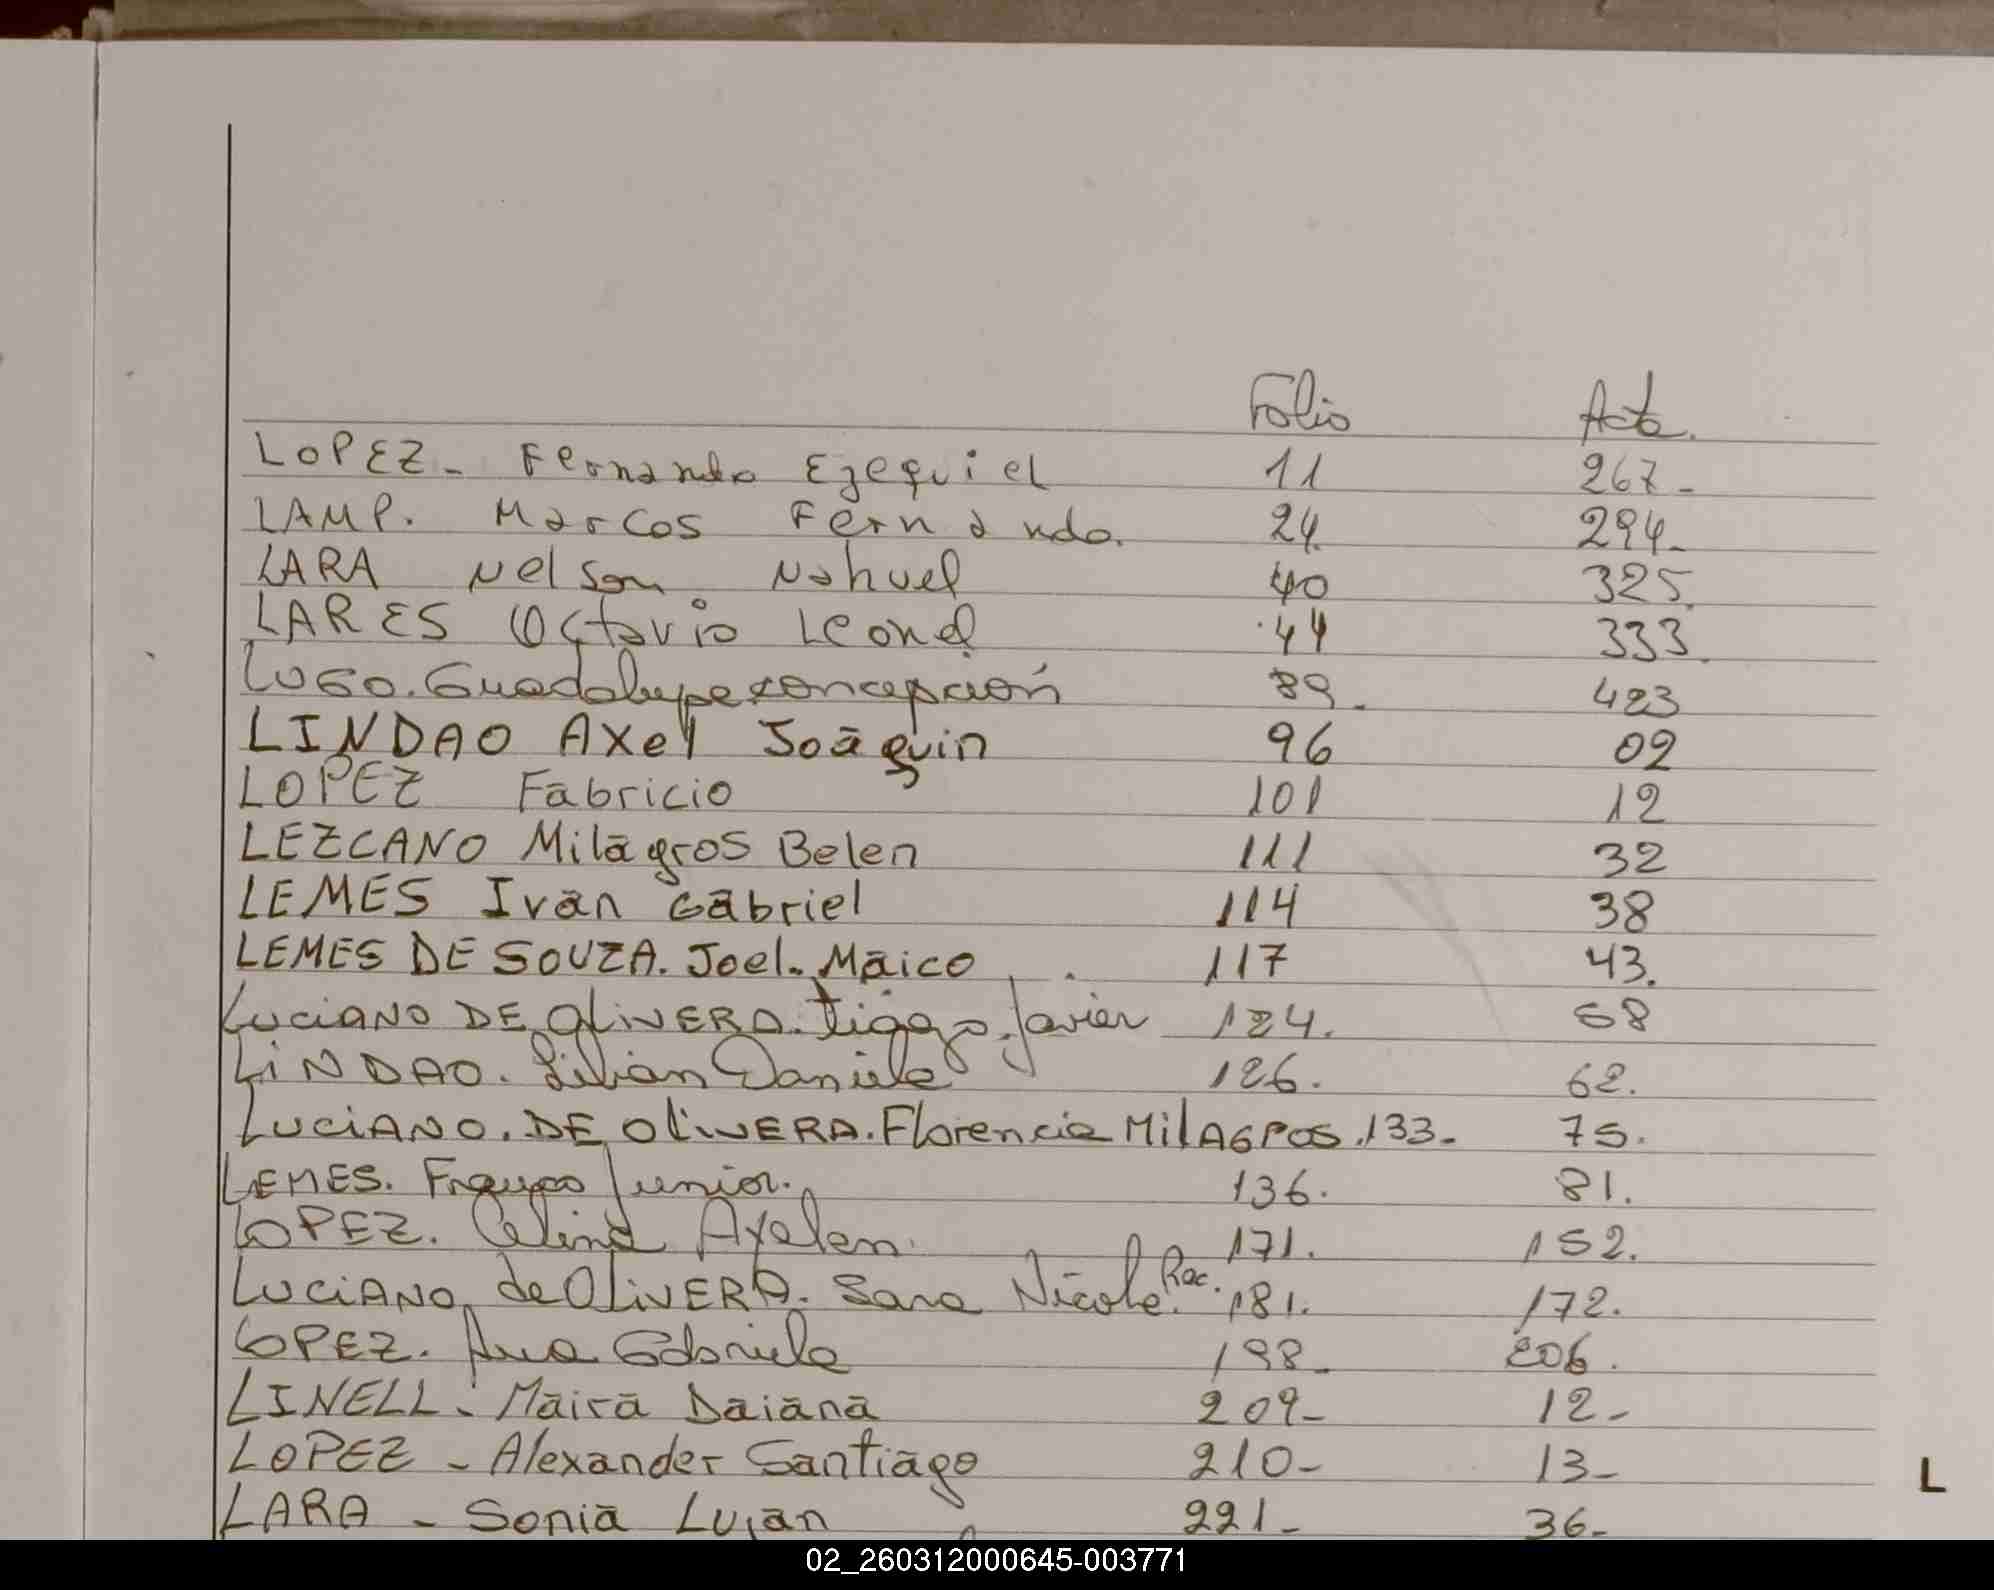 Folio Acta.
LOPEZ- Fernando Ezequiel 11 267-
LAMP. Marcos Fernando. 24. 294-
LARA Nelson Nahuel 40 325.
LARES Octavio Leonel 44 333.
LUGO. Guadalupe concepción 89- 423
LINDAO Axel Joaquin 96 02
LOPEZ Fabricio 101 12
LEZCANO Milagros Belen 111 32
LEMES Ivan Gabriel 114 38
LEMES DE SOUZA. Joel. Maico 117 43.
LUCIANO DE OLIVERA. Tiago Javier 124. 58
LINDAO. Lilian Daniela 126. 62.
LUCIANO. DE OLIVERA. Florencia MILAGROS. 133- 75.
LEMES. Junior. 136. 81.
LOPEZ. Celina Ayelen. 171. 152.
LUCIANO de OLIVERA. Sara Nicole. Rec. 181. 172.
LOPEZ. Ana Gabriela 198- 206.
LINELL. Maira Daiana 209- 12-
LOPEZ - Alexander Santiago 210- 13-
LARA - Sonia Lujan 221- 36-
L
02_260312000645-003771